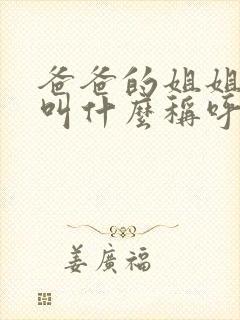 爸爸的姐姐
叫什麼稱呼
姜廣福